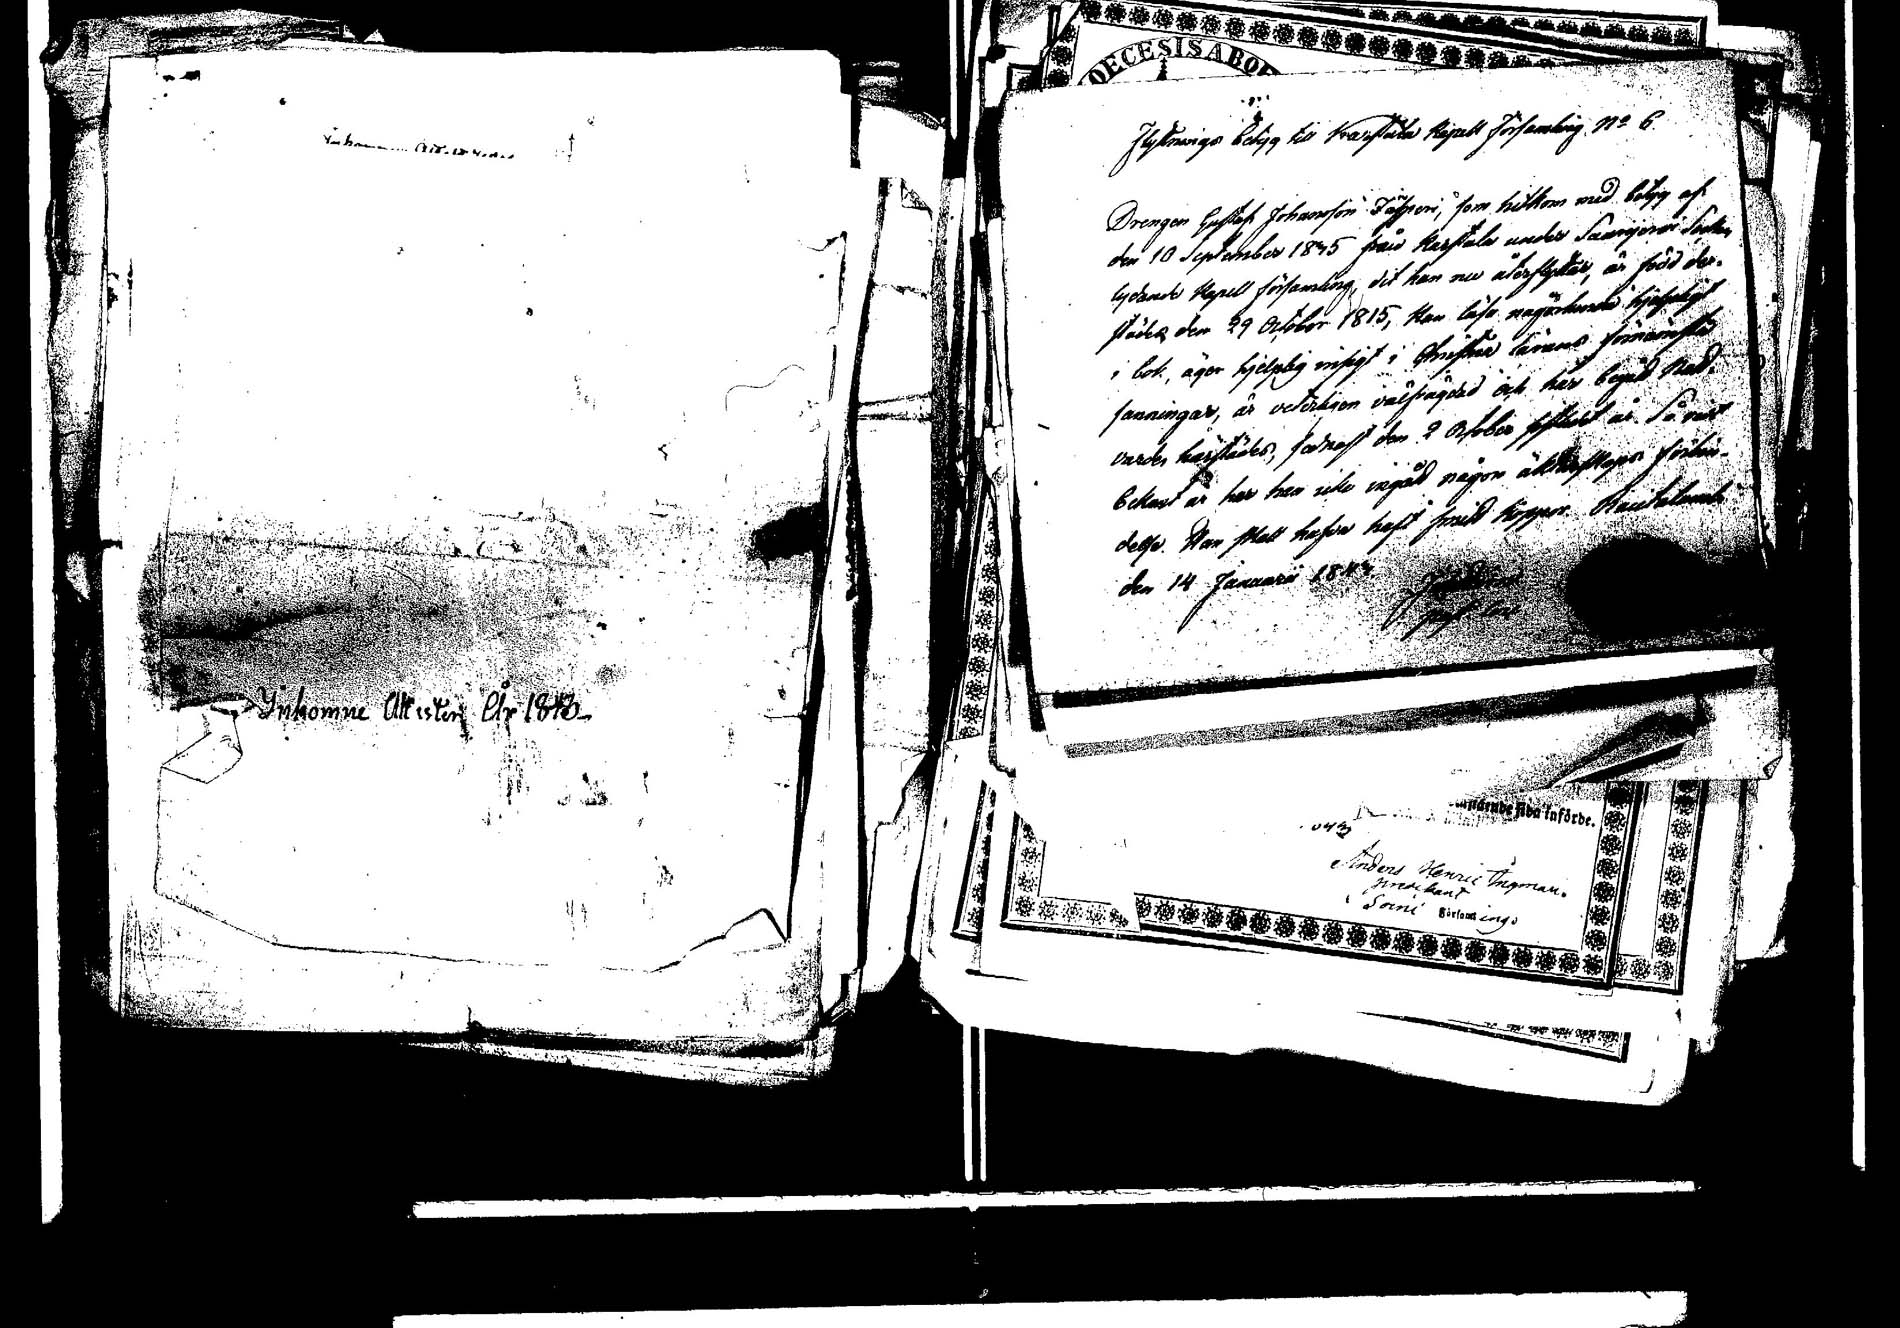 Inkomne Attester År 1843
OECESIS ABOE
Flyttnings betyg till Karstula Kapell Församling No 6.
Drengen Gustaf Johansson som hitkom med betyg af
den 10 September 1835 från Karstula under Saarijervi Sokn
lydande Kapell församling, dit han nu återflyttar, är född der-
städes den 29 October 1815, kan läsa någorlunda hjelpligt
i bok, äger hjelplig insigt i Christna lärans förnämsta
sanningar, är veterligen välfrägdad och har begått Natt-
varden härstädes, sednast den 2 October sistledit år. Så vidt
bekant är har han icke ingått någon äktenskaps förbin-
delse. Han skall hafva haft Koppor. Rautalambi
den 14 Januarii 1843.
stående sida införde.
Anders Henric Ingman.
predikant
Soini Församlings